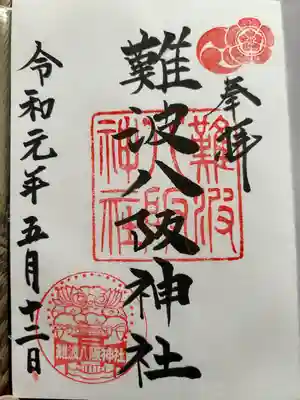 奉拝
難波八阪神社
難波八阪神社
令和元年五月十二日
難波八阪神社